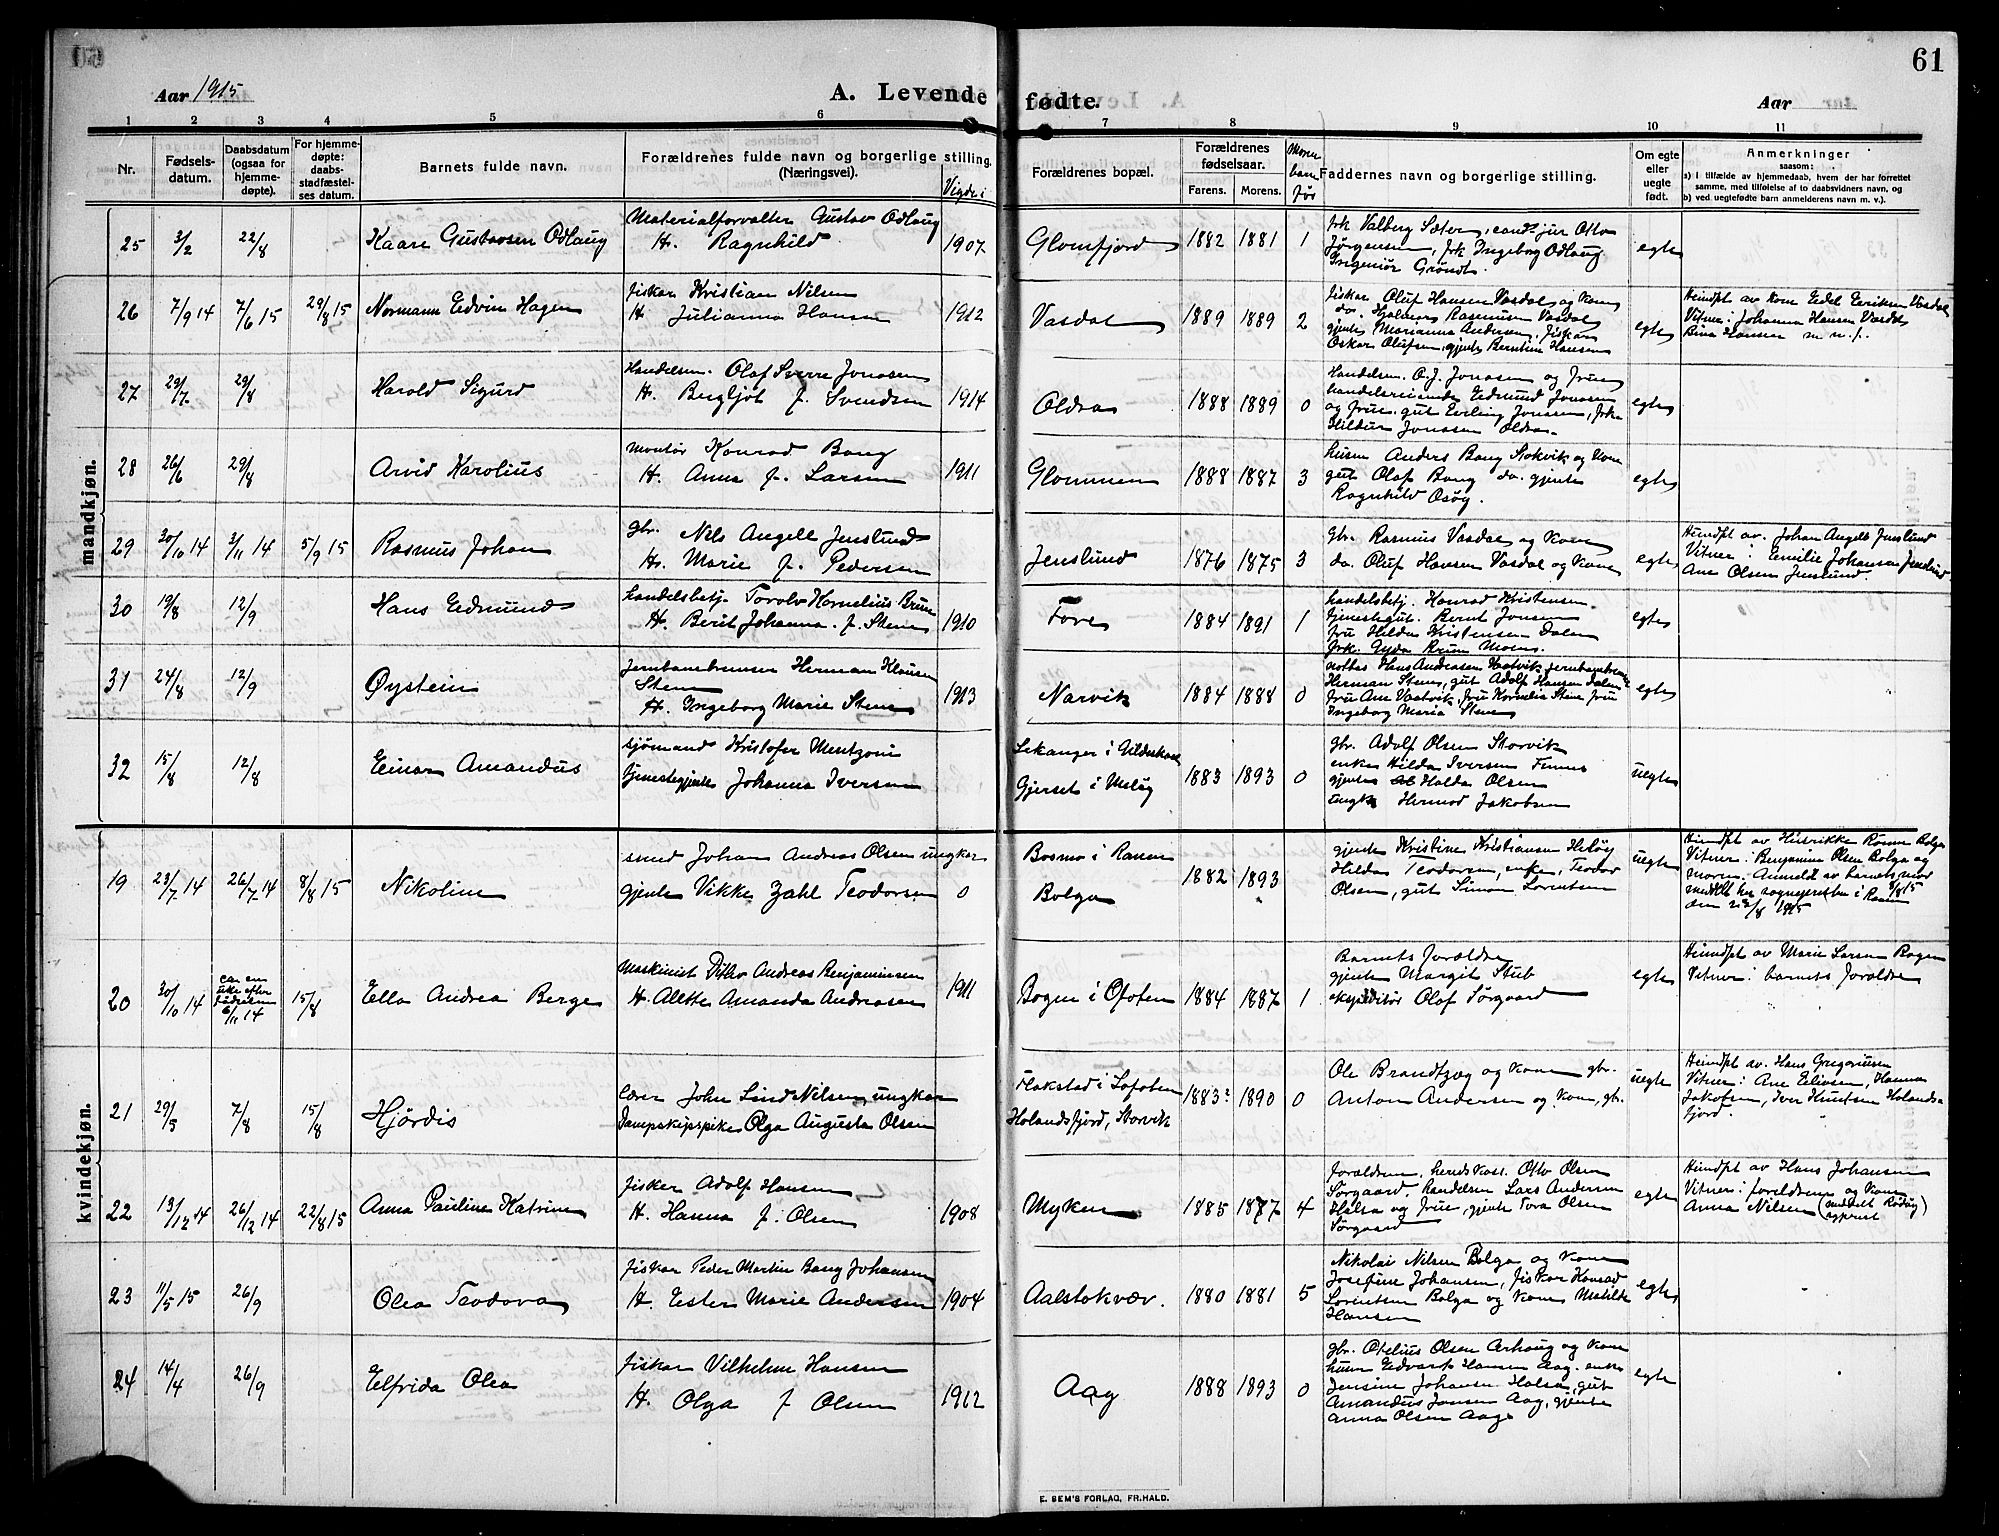 61
Aar 1915
A. Levende fødte.
Aar
1 2 3 4 5 6 7 8 9 10 11
Nr.
Fødselsdatum.
Daabsdatum (ogsaa for hjemmedøpte).
For hjemmedøpte: daabsstadfæstelses datum.
Barnets fulde navn.
Forældrenes fulde navn og borgerlige stilling.
(Næringsvei).
Vigde i
Forældrenes bopæl.
Forældrenes fødselsaar.
Farens. Morens.
Faddernes navn og borgerlige stilling.
Om egte eller uegte født.
Anmerkninger
saasom:
a) i tilfælde av hjemmedaab, hvem der har forrettet
samme, med tilføielse af to daabsvidners navn, og
b) ved uegtefødte barn anmelderens navn m. v.).
mandkjøn.
25 3/2 22/8 Kaare Gustavsen Odlaug
Materialforvalter Gustav Odlaug
H. Ragnhild 1907
Glomfjord 1882 1881 1
frk Valberg Sæter, cand. jur Otto
Jørgensen, frk Ingeborg Odlaug
Ingeniør Grøndt.
egte
26 7/9 14 7/6 15 29/8 15 Normann Edvin Hagen
fisker Kristian Nilsen
H. Julianna Hansen 1912
Vasdal 1889 1889 2
fisker Oluf Hansen Vasdal og kone
do. Hjalmar Rasmussen Vasdal
gjente Marianna Andersen, fisker
Oskar Olufsen, gjente Berntine Hansen
egte
Hemdpt av kone Edel Eriksen Vasdal
Vitner: Johanna Hansen Vasdal
Bina Hansen
27 29/7 29/8 Harald Sigurd
Handelsm. Olaf Sverre Jonasen
H. Bergljot f. Svendsen 1914
Oldra 1888 1889 0
Handelsm. O. J. Jonasen og frue
handelsreisende Edmund Jonasen
og frue. gut Erling Jonasen, frk.
Hildur Jonasen Oldra.
egte
28 26/6 29/8 Arvid Karolius
montør Konrad Bang
H. Anna f. Larsen 1911
Glommen 1888 1887 3
husm Anders Bang Stokvik og kone
gut Olaf Bang do. gjente
Ragnhild Osøy.
egte
29 30/10 14 3/11 14 5/9 15 Rasmus Johan
gbr. Nils Angell Jenslund
H. Marie f. Pedersen
Jenslund 1876 1875 3
Gbr. Rasmus Vasdal og kone
do. Oluf Hansen Vasdal og kone
egte
Hemdpt av. Johan Angell Jenslund
Vitner: Emilie Johansen Jenslund
Ane Olsen Jenslund.
30 19/8 12/9 Hans Edmund
handelsbetj. Torolv Kornelius Brun
H. Berit Johanna f. Stene 1910
Fore 1884 1891 1
handelsbetj. Konrad Kristensen
tjenestegut. Bernt Jonsen
fru Hilda Kristensen Dalen
frk. Gyda Brun Moen.
egte
31 24/8 12/9 Øystein
Jernbanebremser Herman Klausen
Stene
H. Ingeborg Marie Stene 1913
Narvik 1884 1888 0
Hans Andreasen Vastvik jernbanebremser
Herman Stene, gut Adolf Hansen Dalen
fru Ane Vastvik, fru Kornelia Stene fru
Ingeborg Maria Stene
egte
32 15/8 12/8 Einar Amandus
sjømand Kristofer Mentzoni
tjenestegjente Johanna Iversen
Sekanger i Gildeskaal
Gjerset i Meløy
1883 1893 0
gbr. Adolf Olsen Storvik
enke Hilda Iversen Finnes
gjente Halda Olsen
ungk Hermod Jakobsen
uegte
kvindekjøn.
19 23/7 14 26/7 14 8/8 15 Nikoline
smed Johan Andreas Olsen ungkar
gjente Vikke Zahl Teodorsen 0
Bosmo i Ranen
Bolga
1882 1893
gjente Kristine Kristiansen Heløy
Hilda Teodorsen, enke, Teodor
Olsen, gut Simon Lorentsen
uegte
Hemdpt av Henrikke Rønvu Bolga
Vitner: Benjamine Olsen Bolga og
moren. Anmeldt av barnets mor 8/8 15
meddelt her sognepresten i Ranen
den 1915
20 30/10 14 ca. en uke efter fødselen 6/11 14 15/8 Ella Andrea Berge
Maskinist Ditlev Andreas Benjaminsen
H. Alette Amanda Andreasen 1911
Bogen i Ofoten 1884 1887 1
Barnets forældre
gjente Margit Stub
ekspeditør Olaf Sørgaard
egte
Hemdpt av Marie Larsen Bogen
Vitner: barnets forældre
21 29/5 7/8 15/8 Hjørdis
lærer John Lind Nilsen, ungkar
Dampskipspike Olga Augusta Olsen
Flakstad i Lofoten
Holandsfjord, Storvik
1883? 1890 0
Ole Brandtzæg og kone gbr.
Anton Andersen og kone, gbr.
uegte
Hemdpt av. Hans Gregoriusen
Vitner: Ane Elivsen, Hanna
Jakobsen, Iver Knutsen Holandsfjord.
22 13/12 14 26/12 14 22/8 15 Anna Pauline Katrine
fisker Adolf Hansen
H. Hanna f. Olsen 1908
Myken 1885 1877 4
forældrene, Otto Olsen
Sørgaard. Handelsm Lars Andersen
Halsa og frue, gjente Tora Olsen
Sørgaard
egte
Hemdpt av Hans Johansen
Vitner: foreldrene og kone
Anna Nilsen (meddelt Rødøy sogneprest)
23 11/5 15 26/9 Olea Teodora
fisker Peder Martin Bang Johansen
H. Ester Marie Andersen 1904
Aalstokvær. 1880 1881 5
Nikolai Nilsen Bolga og kone
Josefine Johansen, fisker Konrad
Lorentsen Bolga og kone Matilde
Hansen
egte
24 14/4 26/9 Elfrida Olea
fisker Vilhelm Hansen
H. Olga f. Olsen 1912
Aag 1888 1893 0
gbr. Otelius Olsen Arhaug og kone
husm Edvart Hansen Aag. enke
Jensine Johansen Halsa, gut
Amandus Jonsen Aag, gjente
Anna Olsen Aag
egte
E. SEM'S FORLAG, FR.HALD.